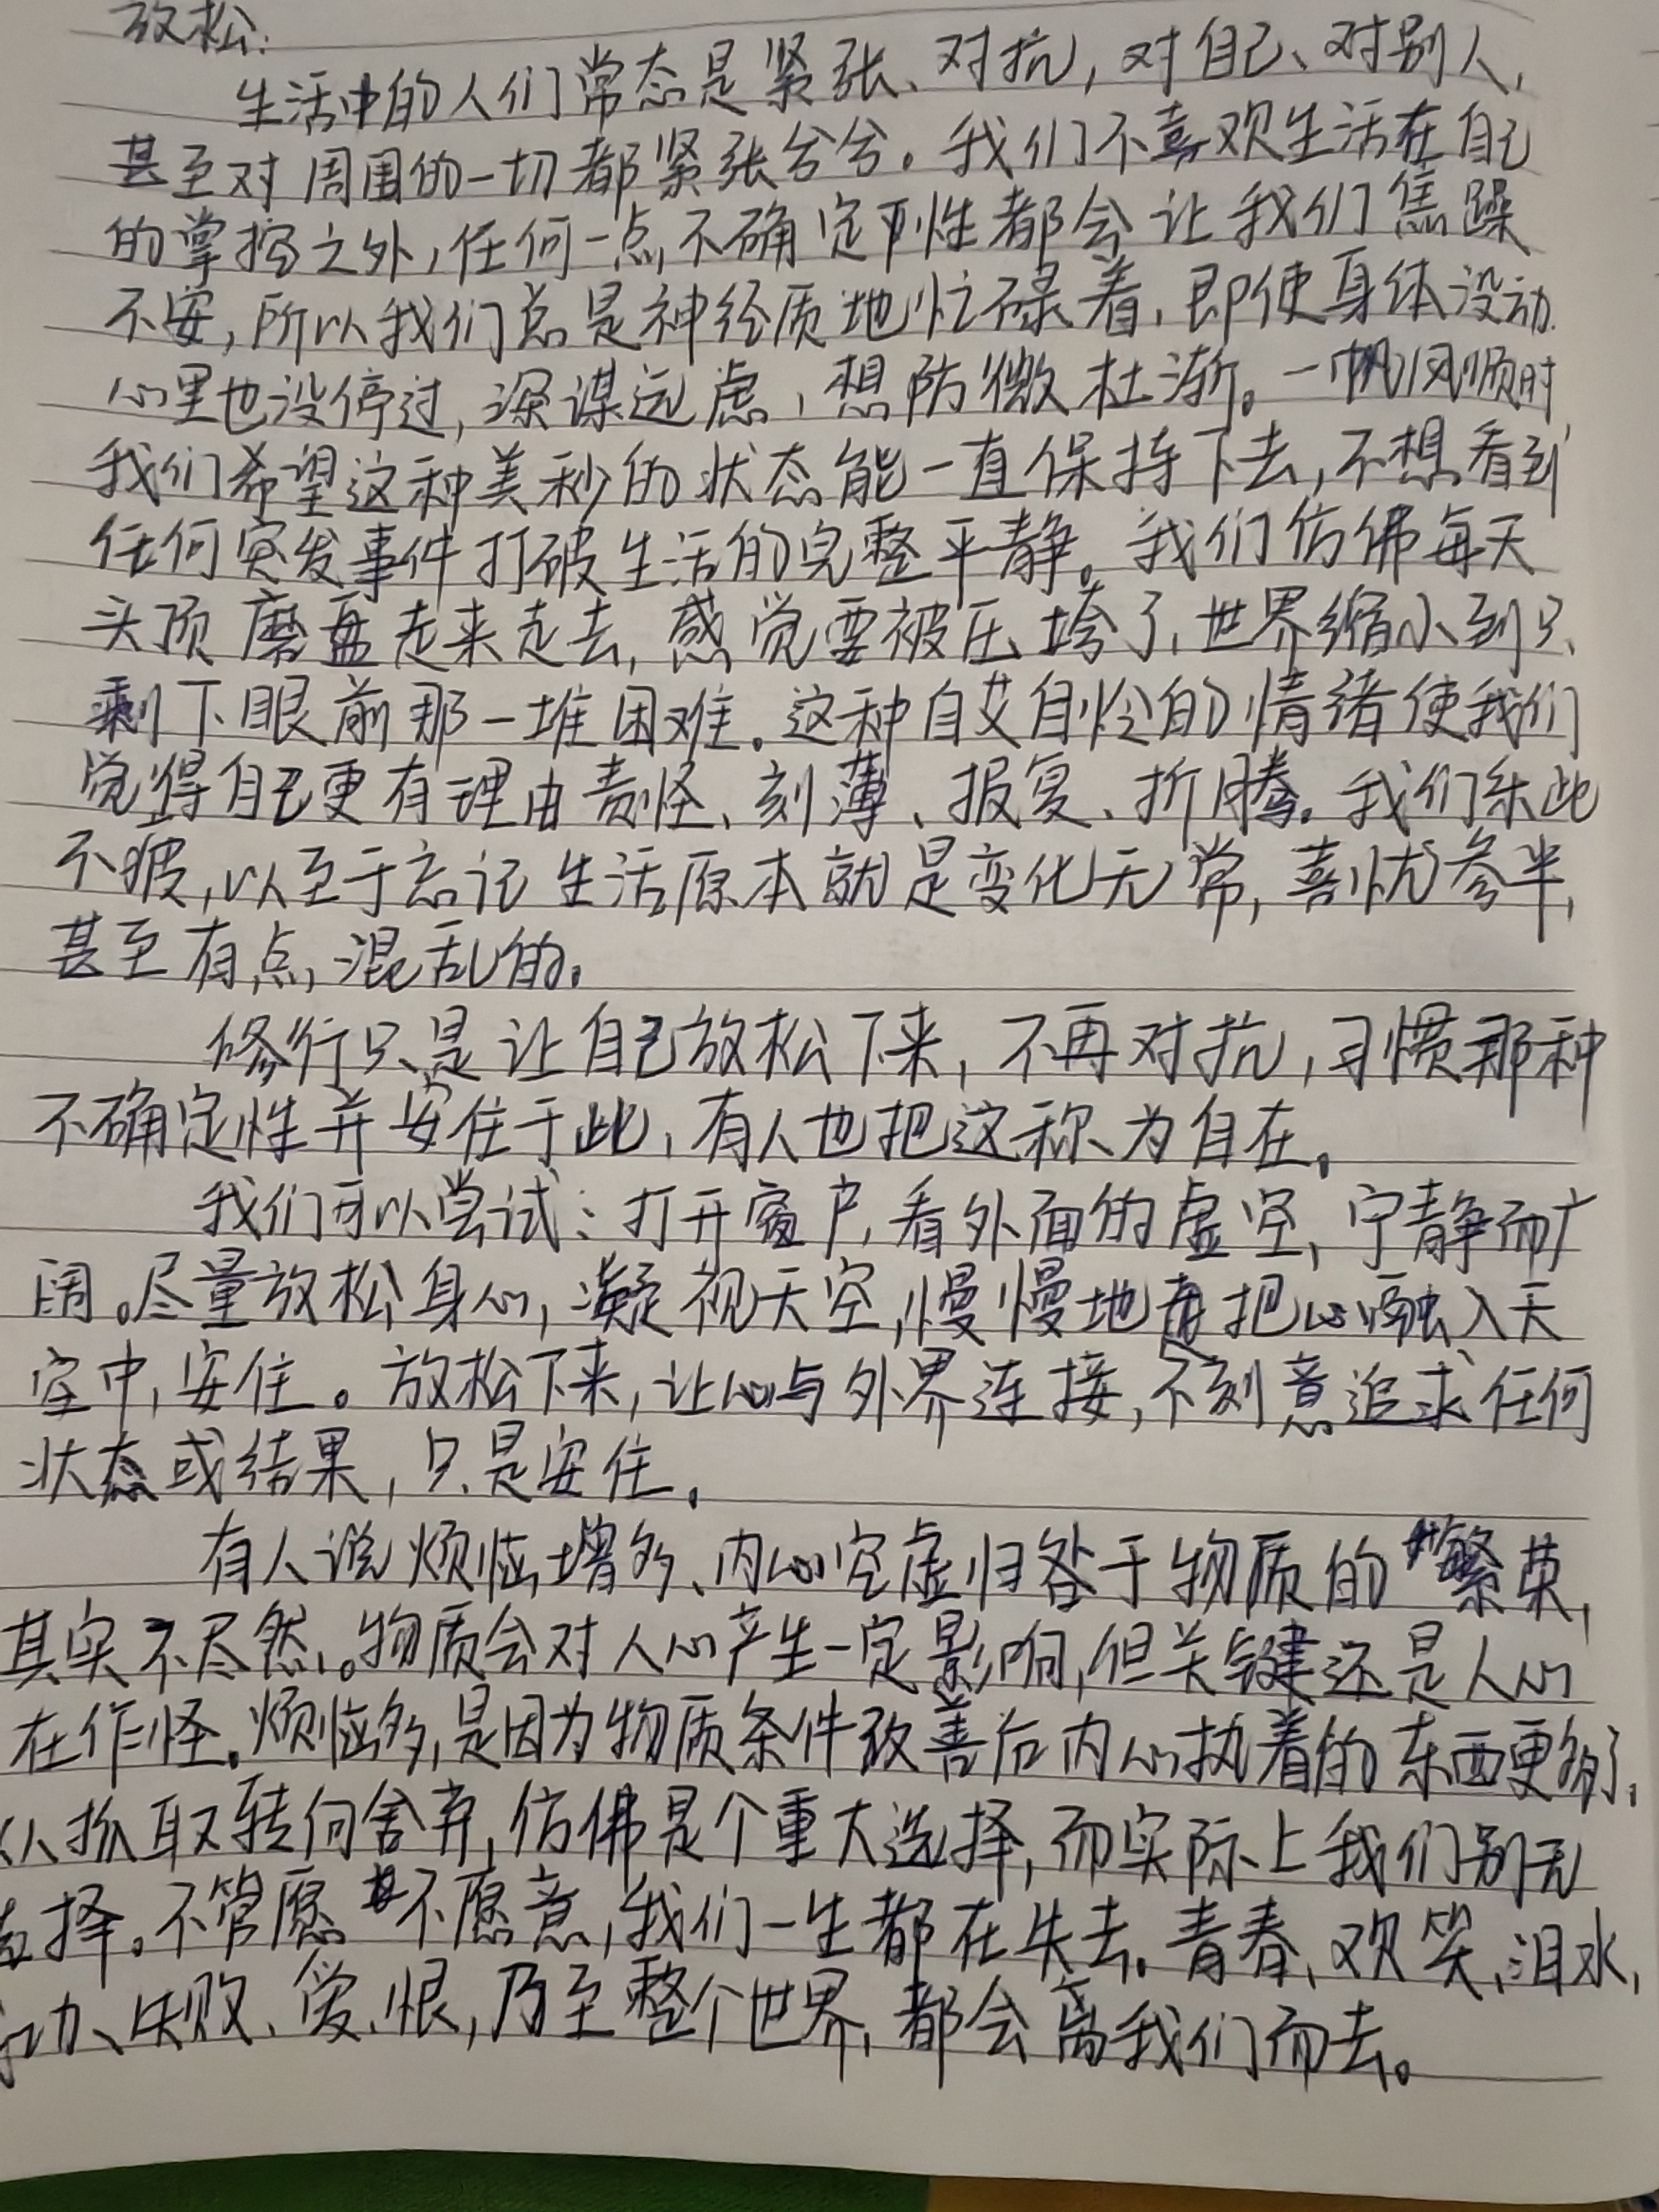 放松:
生活中的人们常态是紧张、对抗,对自己、对别人,
甚至对周围的一切都紧张兮兮。我们不喜欢生活在自己
的掌控之外,任何一点不确定性都会让我们焦躁
不安,所以我们总是神经质地忙碌着,即使身体没动
心里也没停过,深谋远虑,想防微杜渐。一帆风顺时
我们希望这种美秒的状态能一直保持下去,不想看到
任何突发事件打破生活的完整平静。我们仿佛每天
头顶磨盘走来走去,感觉要被压垮了,世界缩小到只
剩下眼前那一堆困难。这种自艾自怜的情绪使我们
觉得自己更有理由责怪、刻薄、报复、折腾。我们乐此
不疲,以至于忘记生活原本就是变化无常,喜忧参半,
甚至有点混乱的。
修行只是让自己放松下来,不再对抗,习惯那种
不确定性并安住于此,有人也把这称为自在。
我们可以尝试:打开窗户,看外面的虚空,宁静而广
阔。尽量放松身心,凝视天空,慢慢地再把心融入天
空中,安住。放松下来,让心与外界连接,不刻意追求任何
状态或结果,只是安住。
有人说烦恼增多、内心空虚归咎于物质的繁荣,
其实不尽然。物质会对人心产生一定影响,但关键还是人心
在作怪。烦恼多,是因为物质条件改善后内心执着的东西更多了,
从抓取转向舍弃,仿佛是个重大选择,而实际上我们别无
选择。不管愿不愿意,我们一生都在失去。青春、欢笑、泪水,
功、失败、爱、恨,乃至整个世界,都会离我们而去。